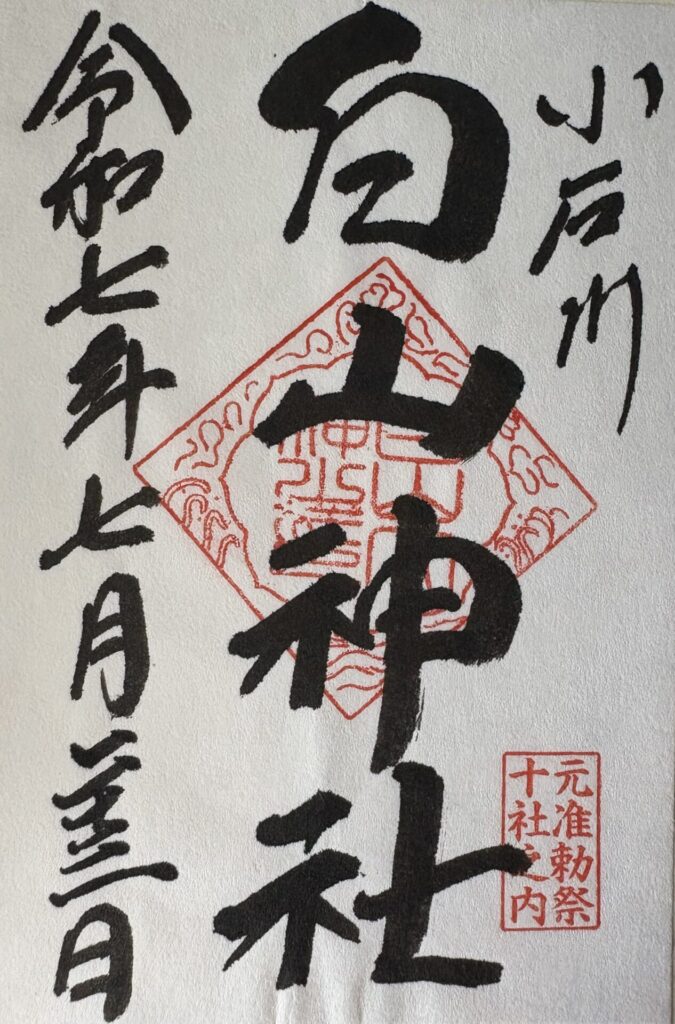 小石川
白山神社
元准勅祭
十社之内
令和七年七月二十三日